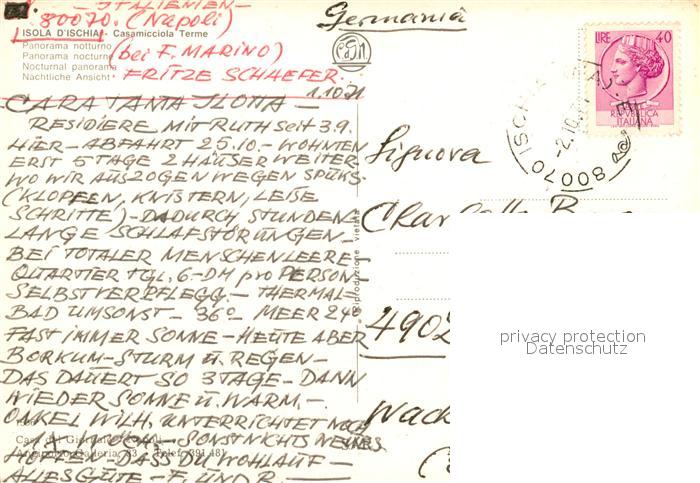 - ITALIEN -
80070. (Napoli)
ISOLA D'ISCHIA - Casamicciola Terme
Panorama notturno
Panorama nocturne
Nocturnal panorama
Nachtliche Ansicht
(bei F. MARINO)
FRITZE SCHAEFER.
1.10.71
CARA TANTA ILONA -
RESIDIERE MIT RUTH SEIT 3.9.
HIER - ABFAHRT 25.10.- WOHNTEN
ERST 5 TAGE 2 HÄUSER WEITER
WO WIR AUSZOGEN WEGEN SPUKS
(KLOPFEN, KNISTERN, LEISE
SCHRITTE) - DADURCH STUNDEN-
LANGE SCHLAFSTÖRUNGEN -
BEI TOTALER MENSCHENLEERE -
QUARTIER TGL. 6.-DM pro PERSON -
SELBSTVERPFLEGG. - THERMAL-
BAD UMSONST - 36° MEER 24°
FAST IMMER SONNE - HEUTE ABER
BORKUM-STURM U. REGEN -
DAS DAUERT SO 3 TAGE - DANN
WIEDER SONNE U. WARM. -
ONKEL WILH. UNTERRICHTET NOCH
WÖCH. - SONST NICHTS NEUES
HOFFEN - DASS DU WOHLAUF -
ALLES GUTE - F. UND R. -
Casa del Giornale - Napoli
Galleria, 33 - Telef. 391.481
Riproduzione vietata
Germania
LIRE 40
REPVBBLICA
ITALIANA
80070 ISCHIA
-2.10.
Signora
4902
privacy protection
Datenschutz